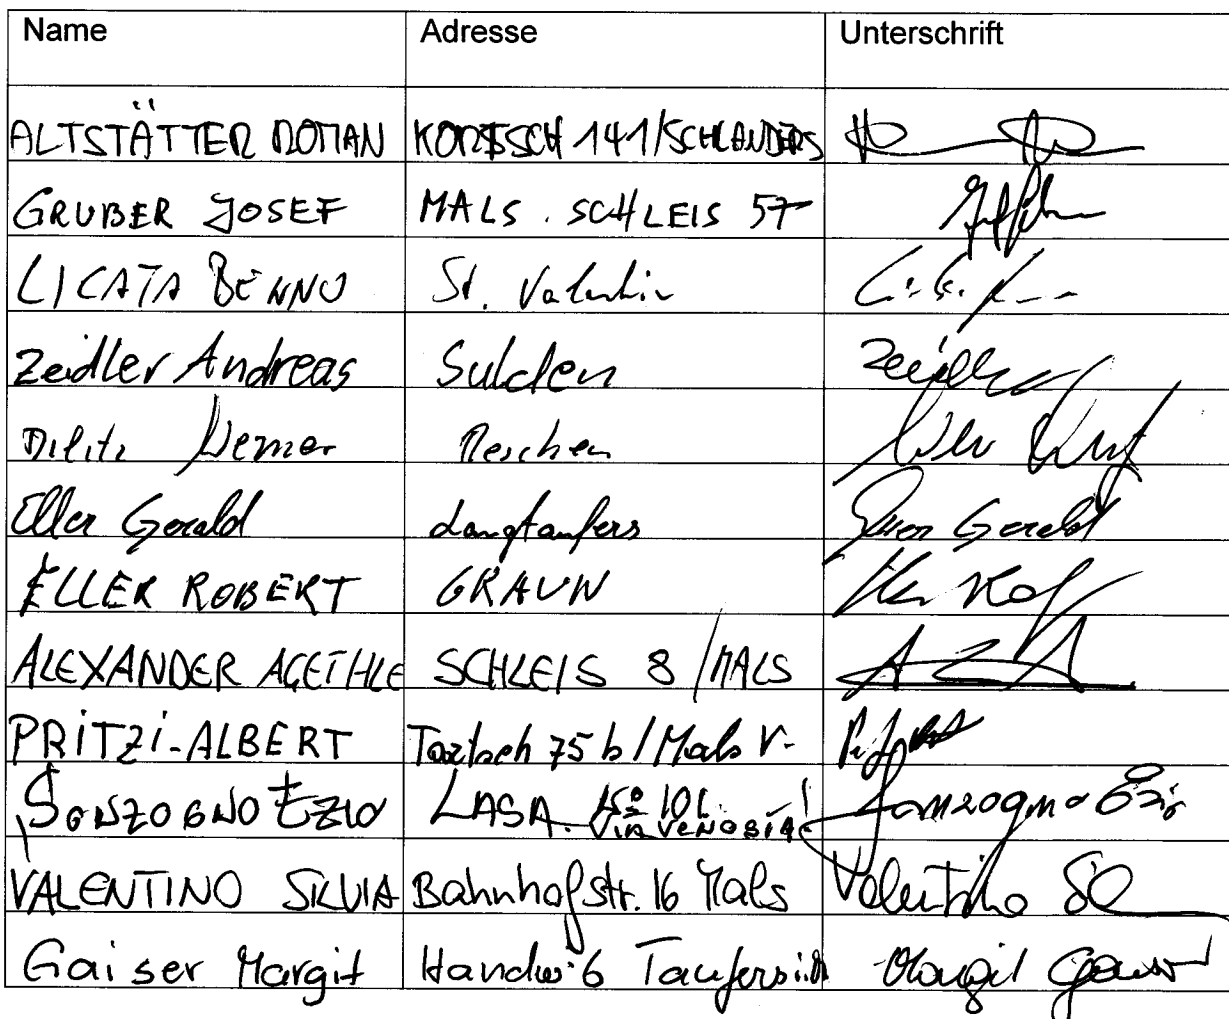 Name Adresse Unterschrift
ALTSTÄTTER ROMAN KORTSCH 141/SCHLANDERS
GRUBER JOSEF MALS. SCHLEIS 57
LICATA BENNO St. Valentin
Zeidler Andreas Sulden Zeidler
Dilitz Werner Reschen
Eller Gerald Langtaufers Eller Gerald
ELLER ROBERT GRAUN
ALEXANDER AGETHLE SCHLEIS 8 /MALS
PRITZI-ALBERT Tartsch 75 b / Mals V-
SONZOGNO EZIO LASA. VIA VENOSTA Sonzogno Ezio
VALENTINO SILVIA Bahnhofstr. 16 Mals Valentino
Gaiser Margit 6 Taufers i.M Margit Gaiser